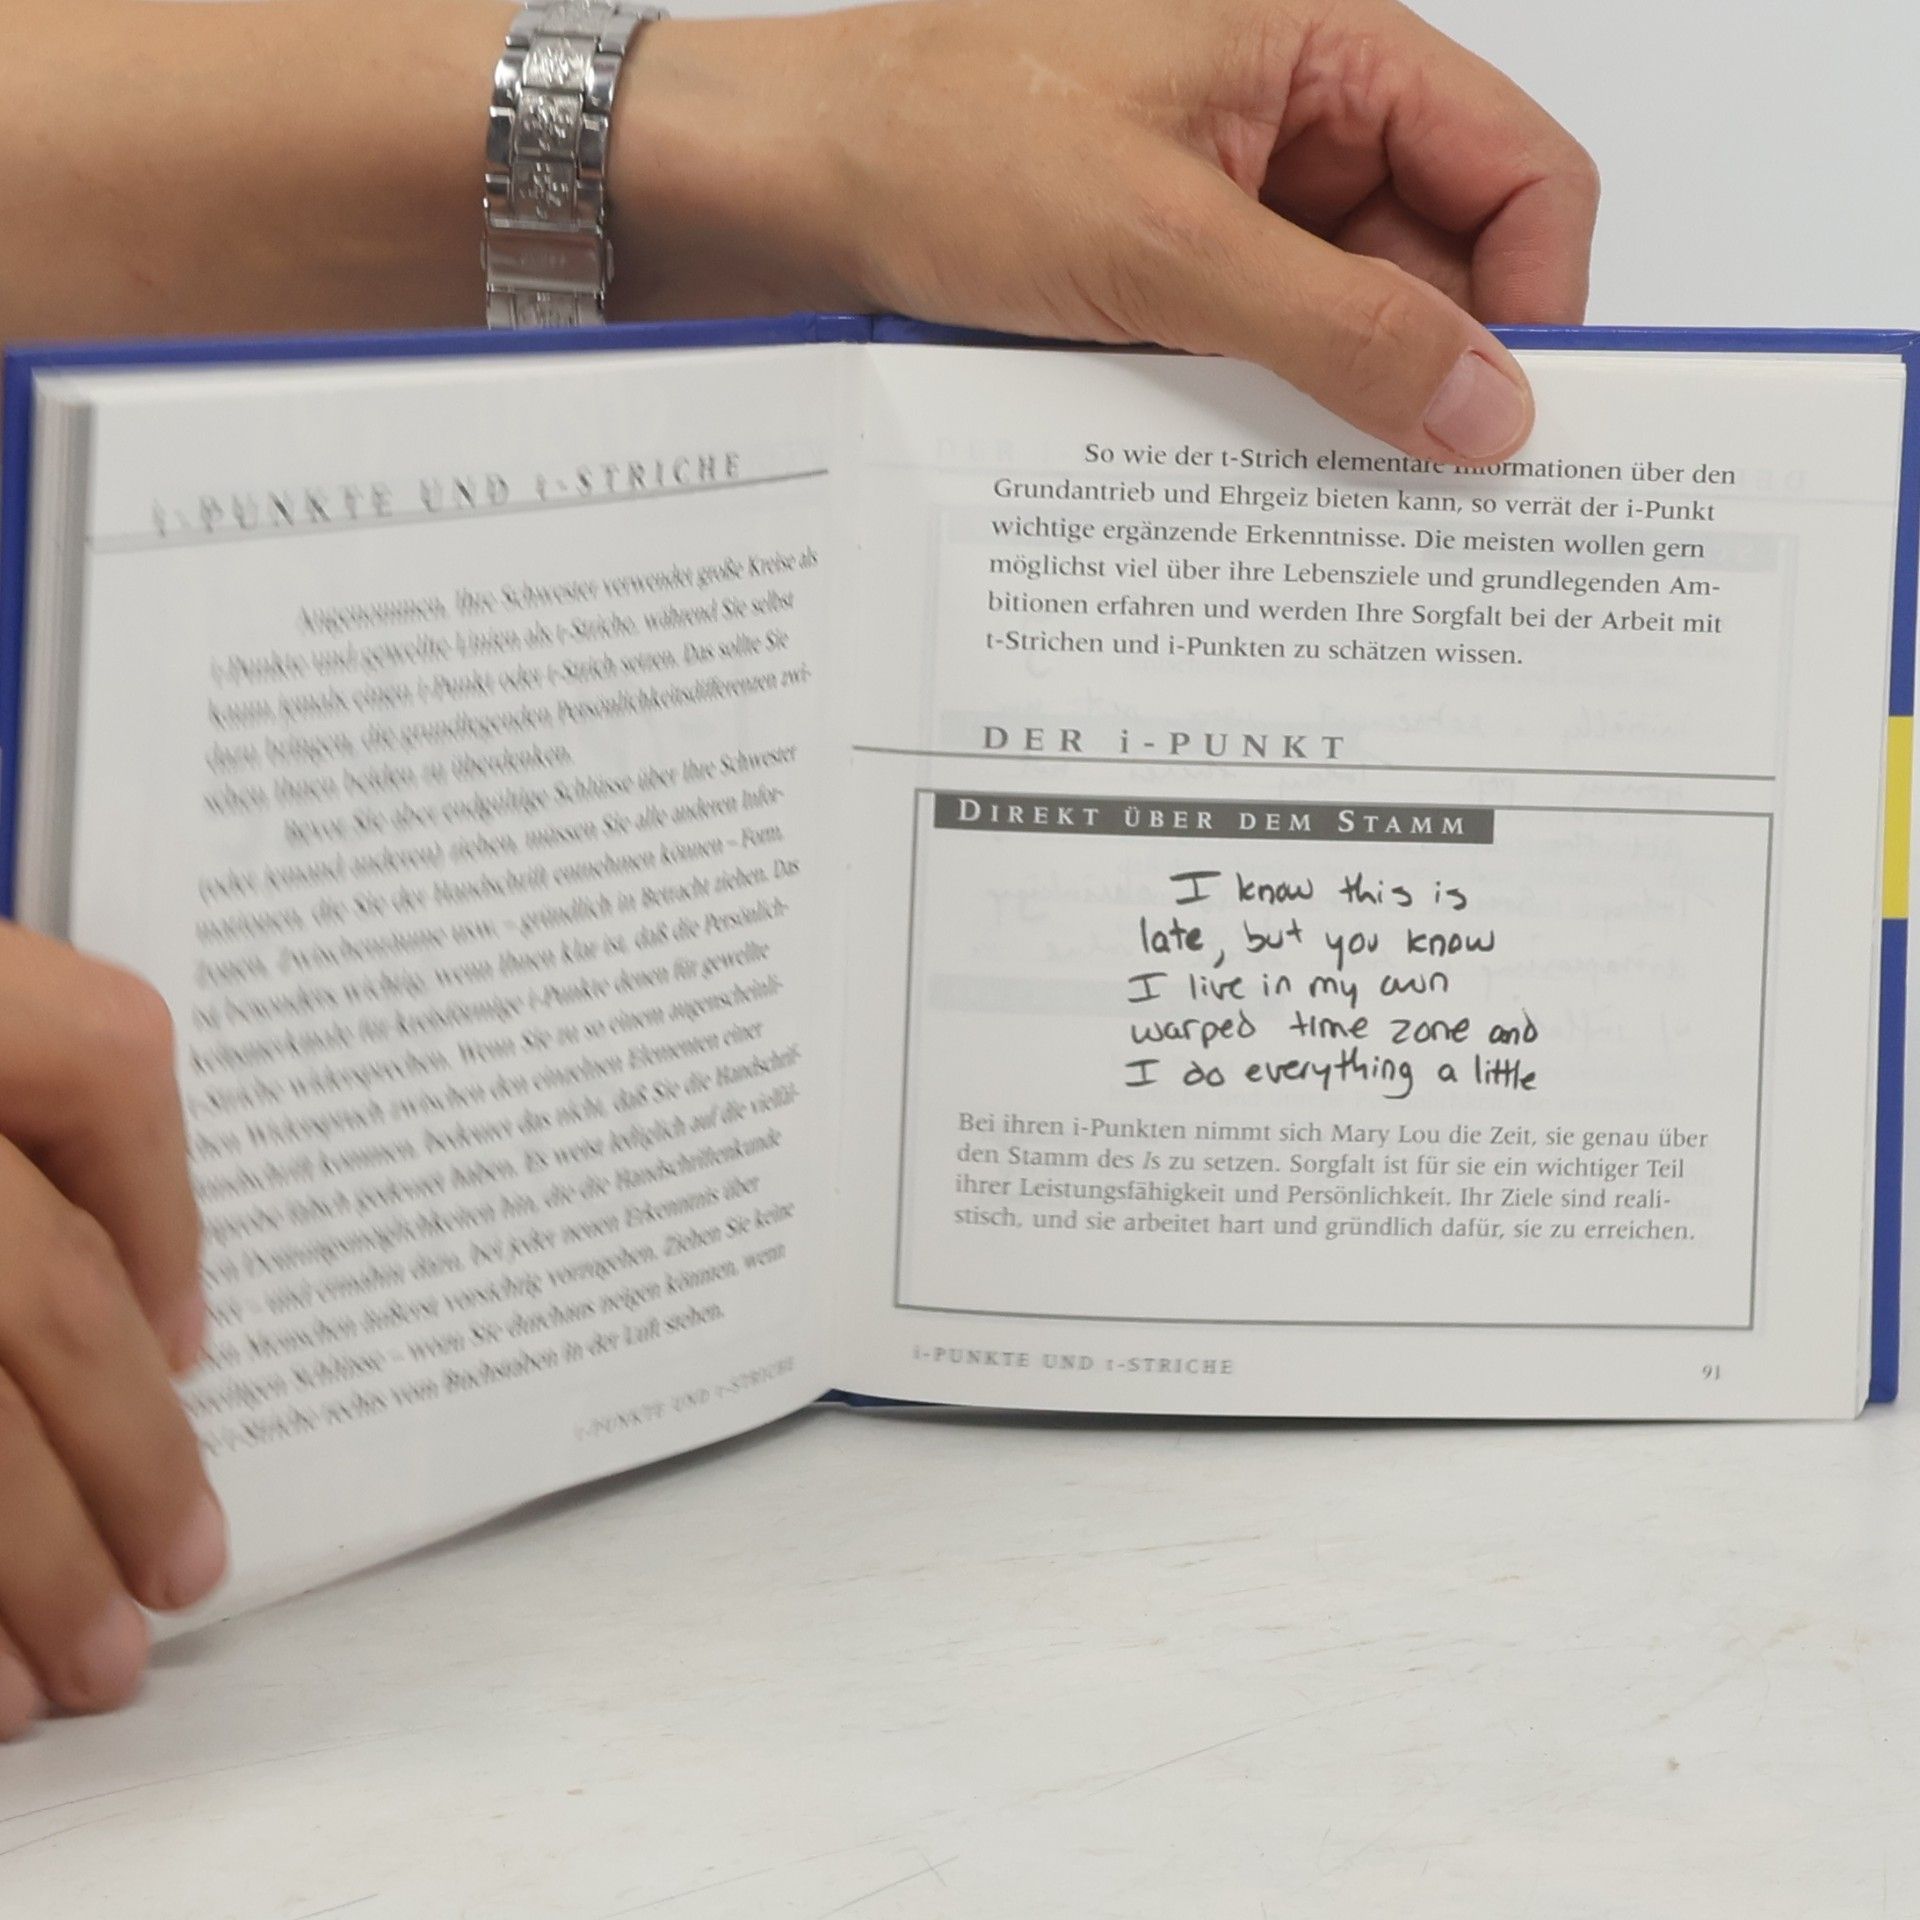 i-PUNKTE UND t-STRICHE
Angenommen, Ihre Schwester verwendet große Kreise als
i-Punkte und gewellte Linien als t-Striche, während Sie selbst
kaum jemals einen i-Punkt oder t-Strich setzen. Das sollte Sie
dazu bringen, die grundlegenden Persönlichkeitsdifferenzen zwi-
schen Ihnen beiden zu überdenken.
Bevor Sie aber endgültige Schlüsse über Ihre Schwester
(oder jemand anderen) ziehen, müssen Sie alle anderen Infor-
mationen, die Sie der Handschrift entnehmen können – Form,
Zonen, Zwischenräume usw. – gründlich in Betracht ziehen. Das
ist besonders wichtig, wenn Ihnen klar ist, daß die Persönlich-
keitsmerkmale für kreisförmige i-Punkte denen für gewellte
t-Striche widersprechen. Wenn Sie zu so einem augenscheinli-
chen Widerspruch zwischen den einzelnen Elementen einer
Handschrift kommen, bedeutet das nicht, daß Sie die Handschrif-
falsch gedeutet haben. Es weist lediglich auf die vielfäl-
Deutungsmöglichkeiten hin, die die Handschriftenkunde
– und ermahnt dazu, bei jeder neuen Erkenntnis über
Menschen äußerst vorsichtig vorzugehen. Ziehen Sie keine
Schlüsse – wozu Sie durchaus neigen könnten, wenn
t-Striche rechts vom Buchstaben in der Luft stehen.
i-PUNKTE UND t-STRICHE
So wie der t-Strich elementare Informationen über den
Grundantrieb und Ehrgeiz bieten kann, so verrät der i-Punkt
wichtige ergänzende Erkenntnisse. Die meisten wollen gern
möglichst viel über ihre Lebensziele und grundlegenden Am-
bitionen erfahren und werden Ihre Sorgfalt bei der Arbeit mit
t-Strichen und i-Punkten zu schätzen wissen.
DER i-PUNKT
DIREKT ÜBER DEM STAMM
I know this is
late, but you know
I live in my own
warped time zone and
I do everything a little
Bei ihren i-Punkten nimmt sich Mary Lou die Zeit, sie genau über
den Stamm des Is zu setzen. Sorgfalt ist für sie ein wichtiger Teil
ihrer Leistungsfähigkeit und Persönlichkeit. Ihr Ziele sind reali-
stisch, und sie arbeitet hart und gründlich dafür, sie zu erreichen.
i-PUNKTE UND t-STRICHE
91